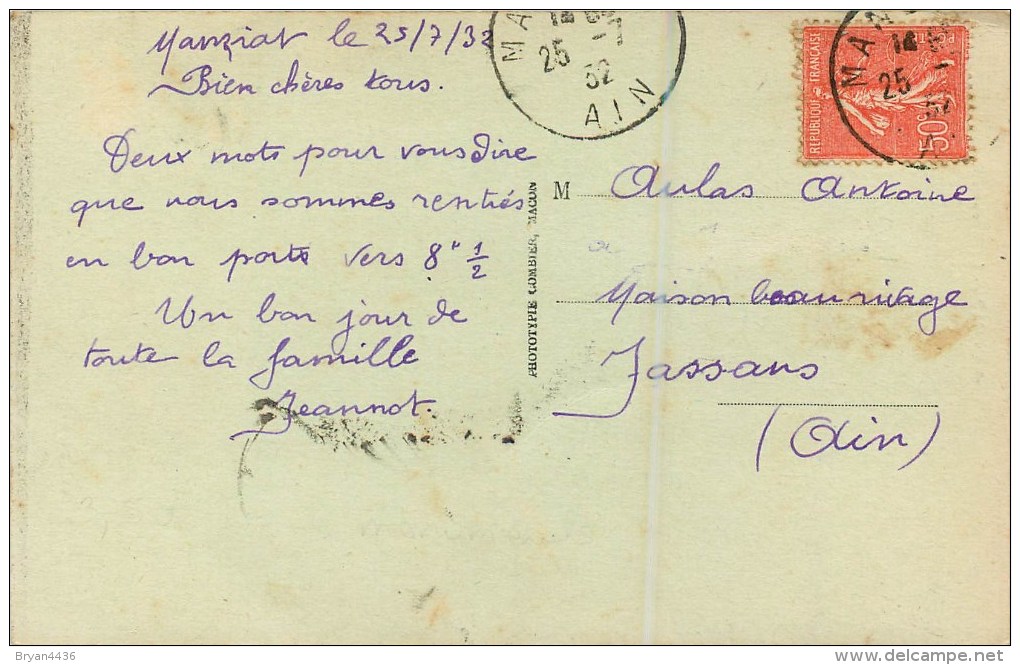 Manziat le 25/7/32
Bien chères tous.
Deux mots pour vous dire
que nous sommes rentrés
en bon port vers 8h 1/2
Un bon jour de
toute la famille
Jeannot.
PHOTOTYPIE COMBIER, MACON
MA
25
-7
32
AIN
REPUBLIQUE FRANÇAISE
POSTES
50c
MA
25
32
M Aulas Antoine
Maison beau rivage
Jassans
(Ain)
Bryan4436
www.delcampe.net